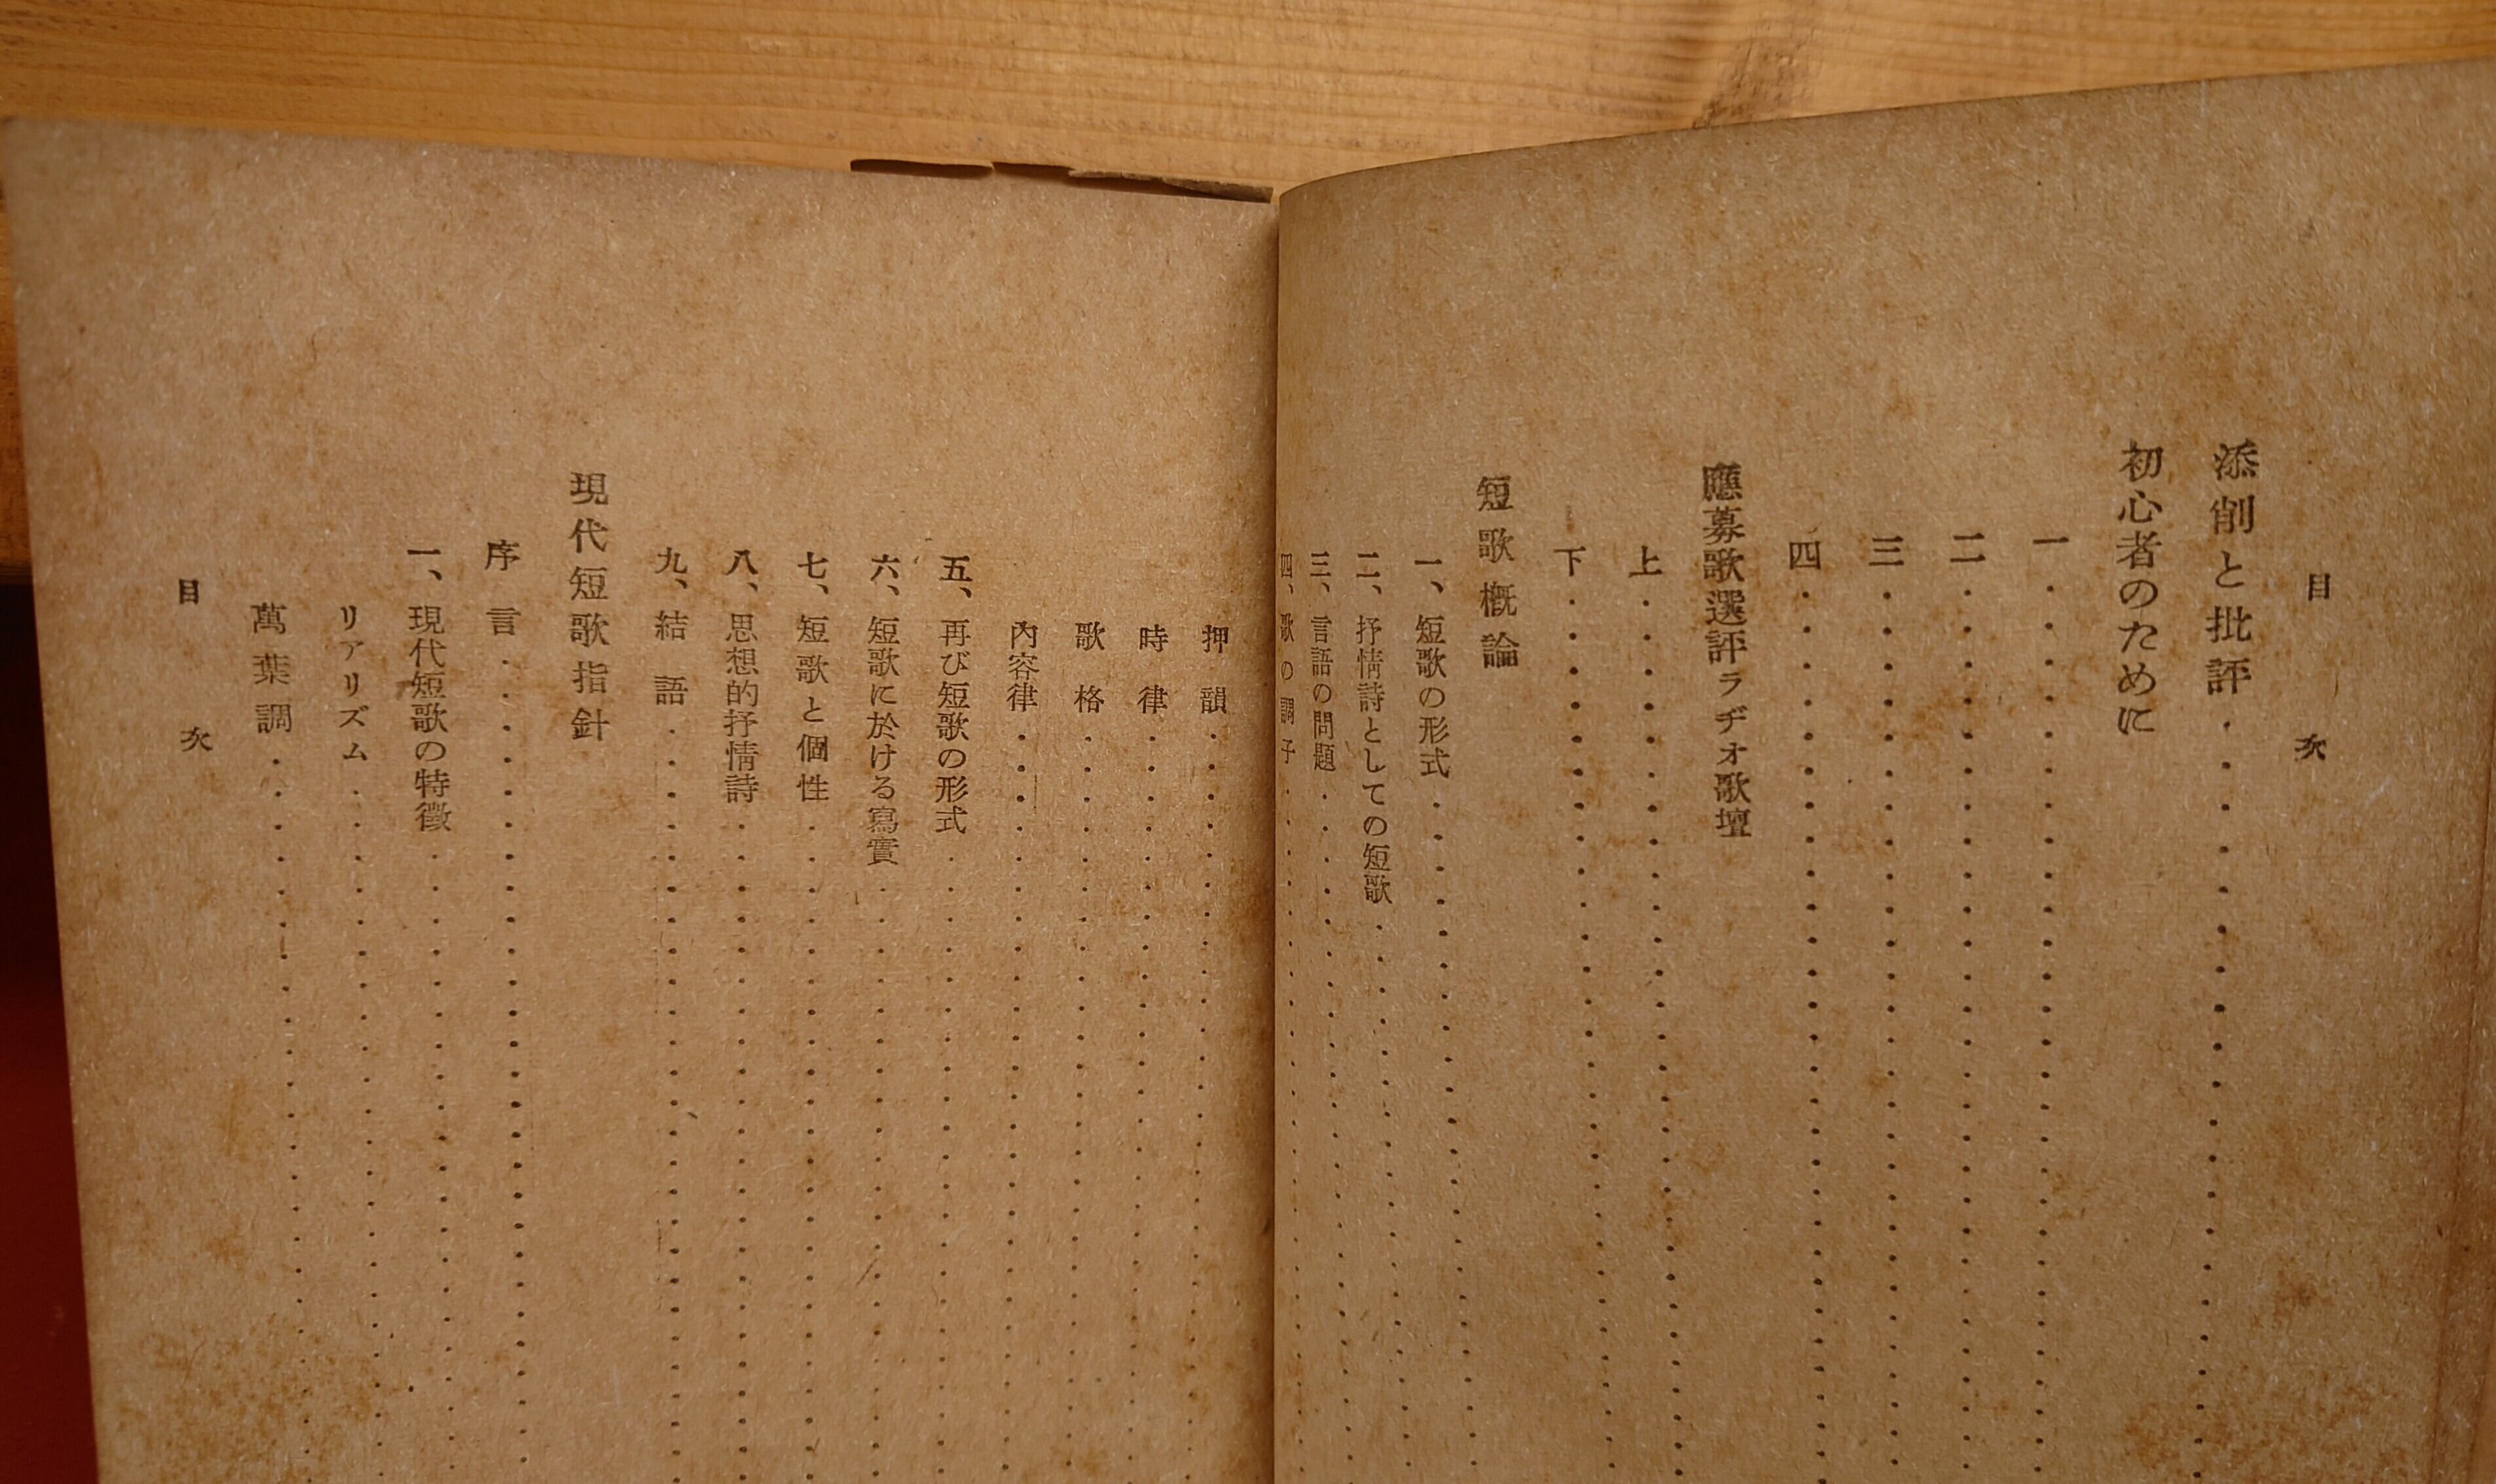 目次
添削と批評
初心者のために
一
二
三
四
應募歌選評ラヂオ歌壇
上
下
短歌概論
一、短歌の形式
二、抒情詩としての短歌
三、言語の問題
四、歌の調子
押韻
時律
歌格
內容律
五、再び短歌の形式
六、短歌に於ける寫實
七、短歌と個性
八、思想的抒情詩
九、結語
現代短歌指針
序言
一、現代短歌の特徵
リアリズム
萬葉調
目次